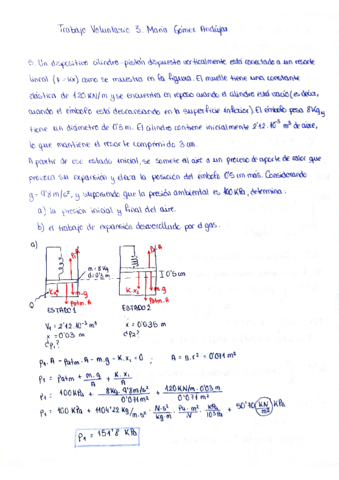 Trabajo Voluntario 3. María Gómez Andújar
5. Un dispositivo cilindro-pistón dispuesto verticalmente está conectado a un resorte
lineal (F=Kx) como se muestra en la figura. El muelle tiene una constante
elástica de 120 KN/m y se encuentra en reposo cuando el cilindro está vacío (es decir,
cuando el émbolo está descansando en la superficie inferior). El émbolo pesa 8Kg y
tiene un diámetro de 0'3 m. El cilindro contiene inicialmente 2'12·10⁻³ m³ de aire,
lo que mantiene el resorte comprimido 3 cm.
A partir de ese estado inicial, se somete el aire a un proceso de aporte de calor que
provoca su expansión y eleva la posición del émbolo 0'5 cm más. Considerando
g=9'8 m/s², y suponiendo que la presión ambiental es 100 KPa, determina:
a) la presión inicial y final del aire.
b) el trabajo de expansión desarrollado por el gas.
a)
m = 8 Kg
d = 0'3 m
I 0'5 cm
P.A
P.A
K.x₁
m.g
Patm.A
K.x₂
m.g
Patm.A
Q
ESTADO 1
ESTADO 2
V₁ = 2'12·10⁻³ m³
x = 0'03 m
¿P₁?
x = 0'035 m
¿P₂?
P₁·A - Patm·A - m·g - K·x₁ = 0 ; A = π·r² = 0'071 m²
P₁ = Patm + m·g/A + K·x₁/A
P₁ = 100 KPa + 8Kg·9'8 m/s² / 0'071 m² + 120 KN/m·0'03 m / 0'071 m²
P₁ = 100 KPa + 1104'22 Kg/m·s² · N·s²/Kg·m · Pa·m²/N · KPa/10³ Pa + 50'70 KN/m² KPa
P₁ = 151'8 KPa